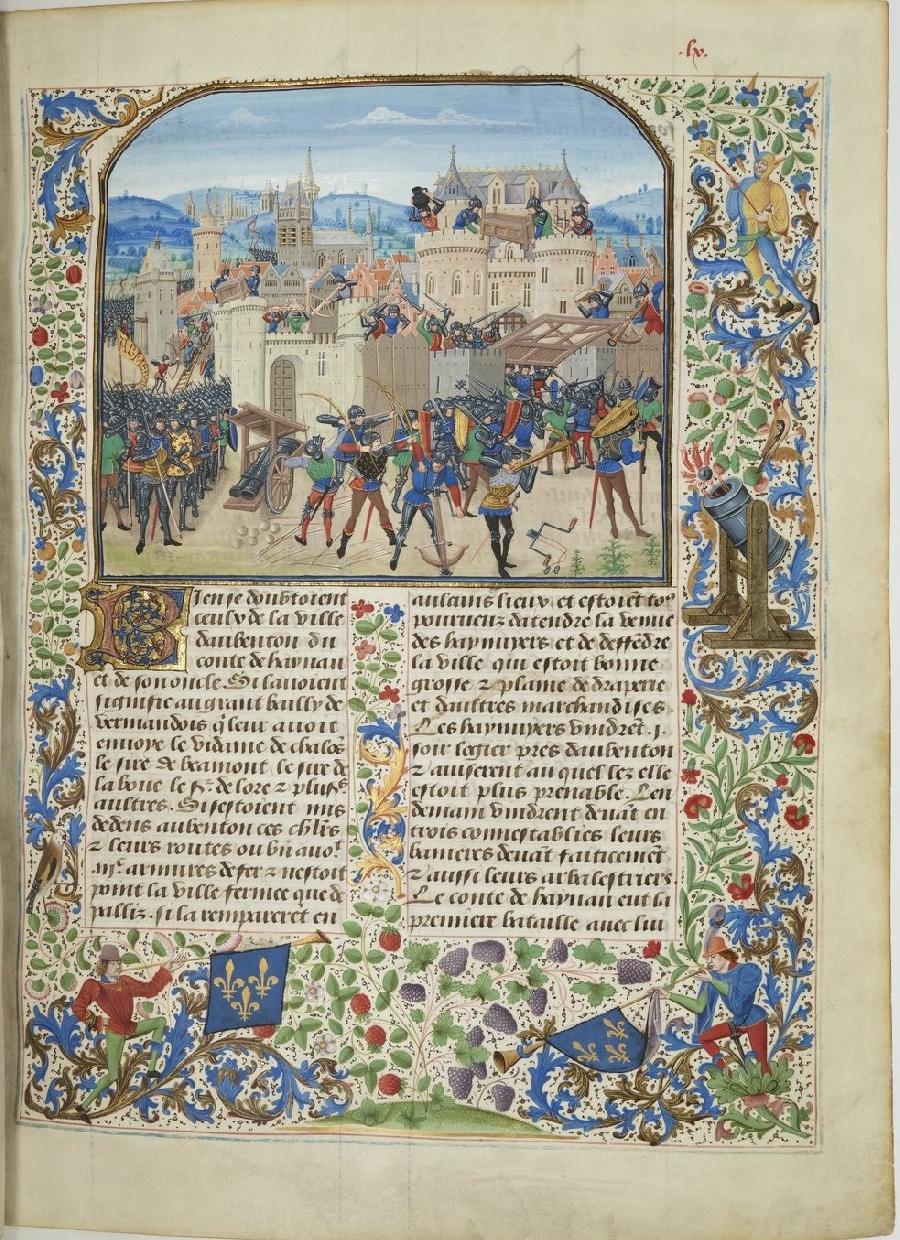 .lx.
Bien se doubtoient
ceulx de la ville
daubenton du
conte de haynau
et de son oncle. Si lauoient
signifie au grant bailly de
vermandois q̃ leur auoit
enuoye le vidame de chalos
le sire de beamont le sire de
la boue le sr. de lore z plusrs
aultres. Si sestoient mis
dedens aubenton ces chlrs
z leurs routes ou bn auoit
.iiic. armures de fer z nestoit
point la ville fermee que de
palliz. si la rempareret en
aulcuns lieux et estoiet tos
pourueuz datendre la venue
des haynuyers et de deffedre
la ville qui estoit bonne
grosse z plaine de draperie
et daultres marchandises
Les haynuyers vindret .j.
soir logier pres daubenton
z auiserent au quel lez elle
estoit plus prenable. Len
demain vindrent deuat en
trois connestablies leurs
banieres deuat faiticemet
z aussi leurs arbalestriers
Le conte de haynau eut la
premiere bataille auec lui